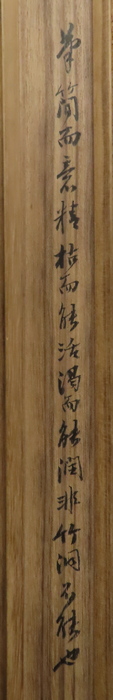 筆简而意精枯而能活渴而能润非竹洞不能也